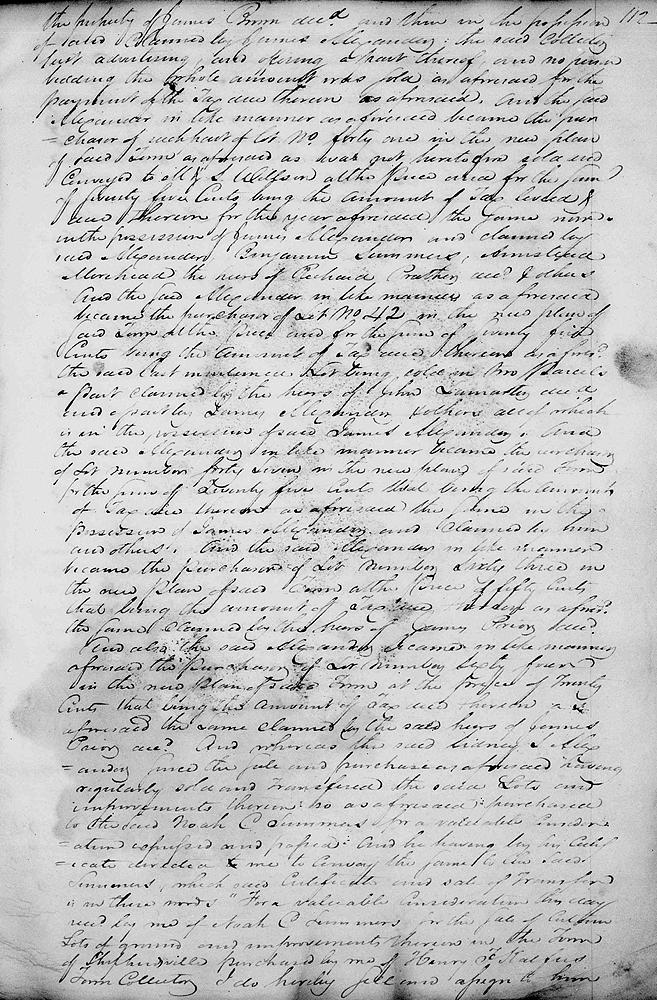 112
the property of James Brown decd and then in the possession
of said claimed by James Alexander: the said Collector
first advertising, and offering a part thereof, and no person
bidding the whole amount was sold as aforesaid for the
payment of the Tax due thereon as aforesaid. And the said
Alexander in like manner as aforesaid became the pur
=chaser of such part of Lot No. forty one in the new plan
of said Town as aforesaid as was not heretofore sold and
Conveyed to M & S. Wilson at the price and for the sum
of twenty five Cents being the amount of Tax levied &
due thereon for the year aforesaid, the same now
in the possession of James Alexander and claimed by
said Alexander, Benjamin Summers, Armstead
Morehead the heirs of Prather decd & others
And the said Alexander in like manner as aforesaid
became the purchaser of Lot No 42 in the new plan of
said Town at the price and for the sum of twenty five
Cents being the amount of Tax due thereon as afores.d
the said last mentioned Lot being sold in two Parcels
a part claimed by the heirs of John decd
and a part by James Alexander & others all of which
is in the possession of said James Alexander. And
the said Alexander in like manner became the purchaser
of Lot number forty seven in the new plan of said Town
for the sum of Twenty five Cents that being the amount
of Tax due thereon as aforesaid the same in the
possession of James Alexander and claimed by him
and others. And the said Alexander in like manner
became the purchaser of Lot number Sixty three in
the new plan of said Town at the Price of fifty Cents
that being the amount of Tax due thereon as afores.d
the same claimed by the heirs of James Pryor decd.
And also the said Alexander became in like manner
aforesaid the Purchaser of Lot number Sixty four
in the new Plan of said Town at the Price of Twenty
Cents that being the amount of Tax due thereon as
aforesaid the same claimed by the said heirs of James
Pryor decd. And whereas the said Alex
=ander since the sale and purchase as aforesaid having
regularly sold and transfered the said Lots and
improvements thereon so as aforesaid purchased
to the said Noah C Summers for a valuable Consider
=ation expressed and passed: And he having by his Certif
=icate directed me to Convey the same to the said
Summers, which said Certificate and sale of Transfer
is in these words "For a valuable Consideration this day
recd by me of Noah C Summers for the sale of
Lots of ground and improvements thereon in the Town
of Shepherdsville purchased by me of Henry
Town Collector I do hereby sell and assign to him